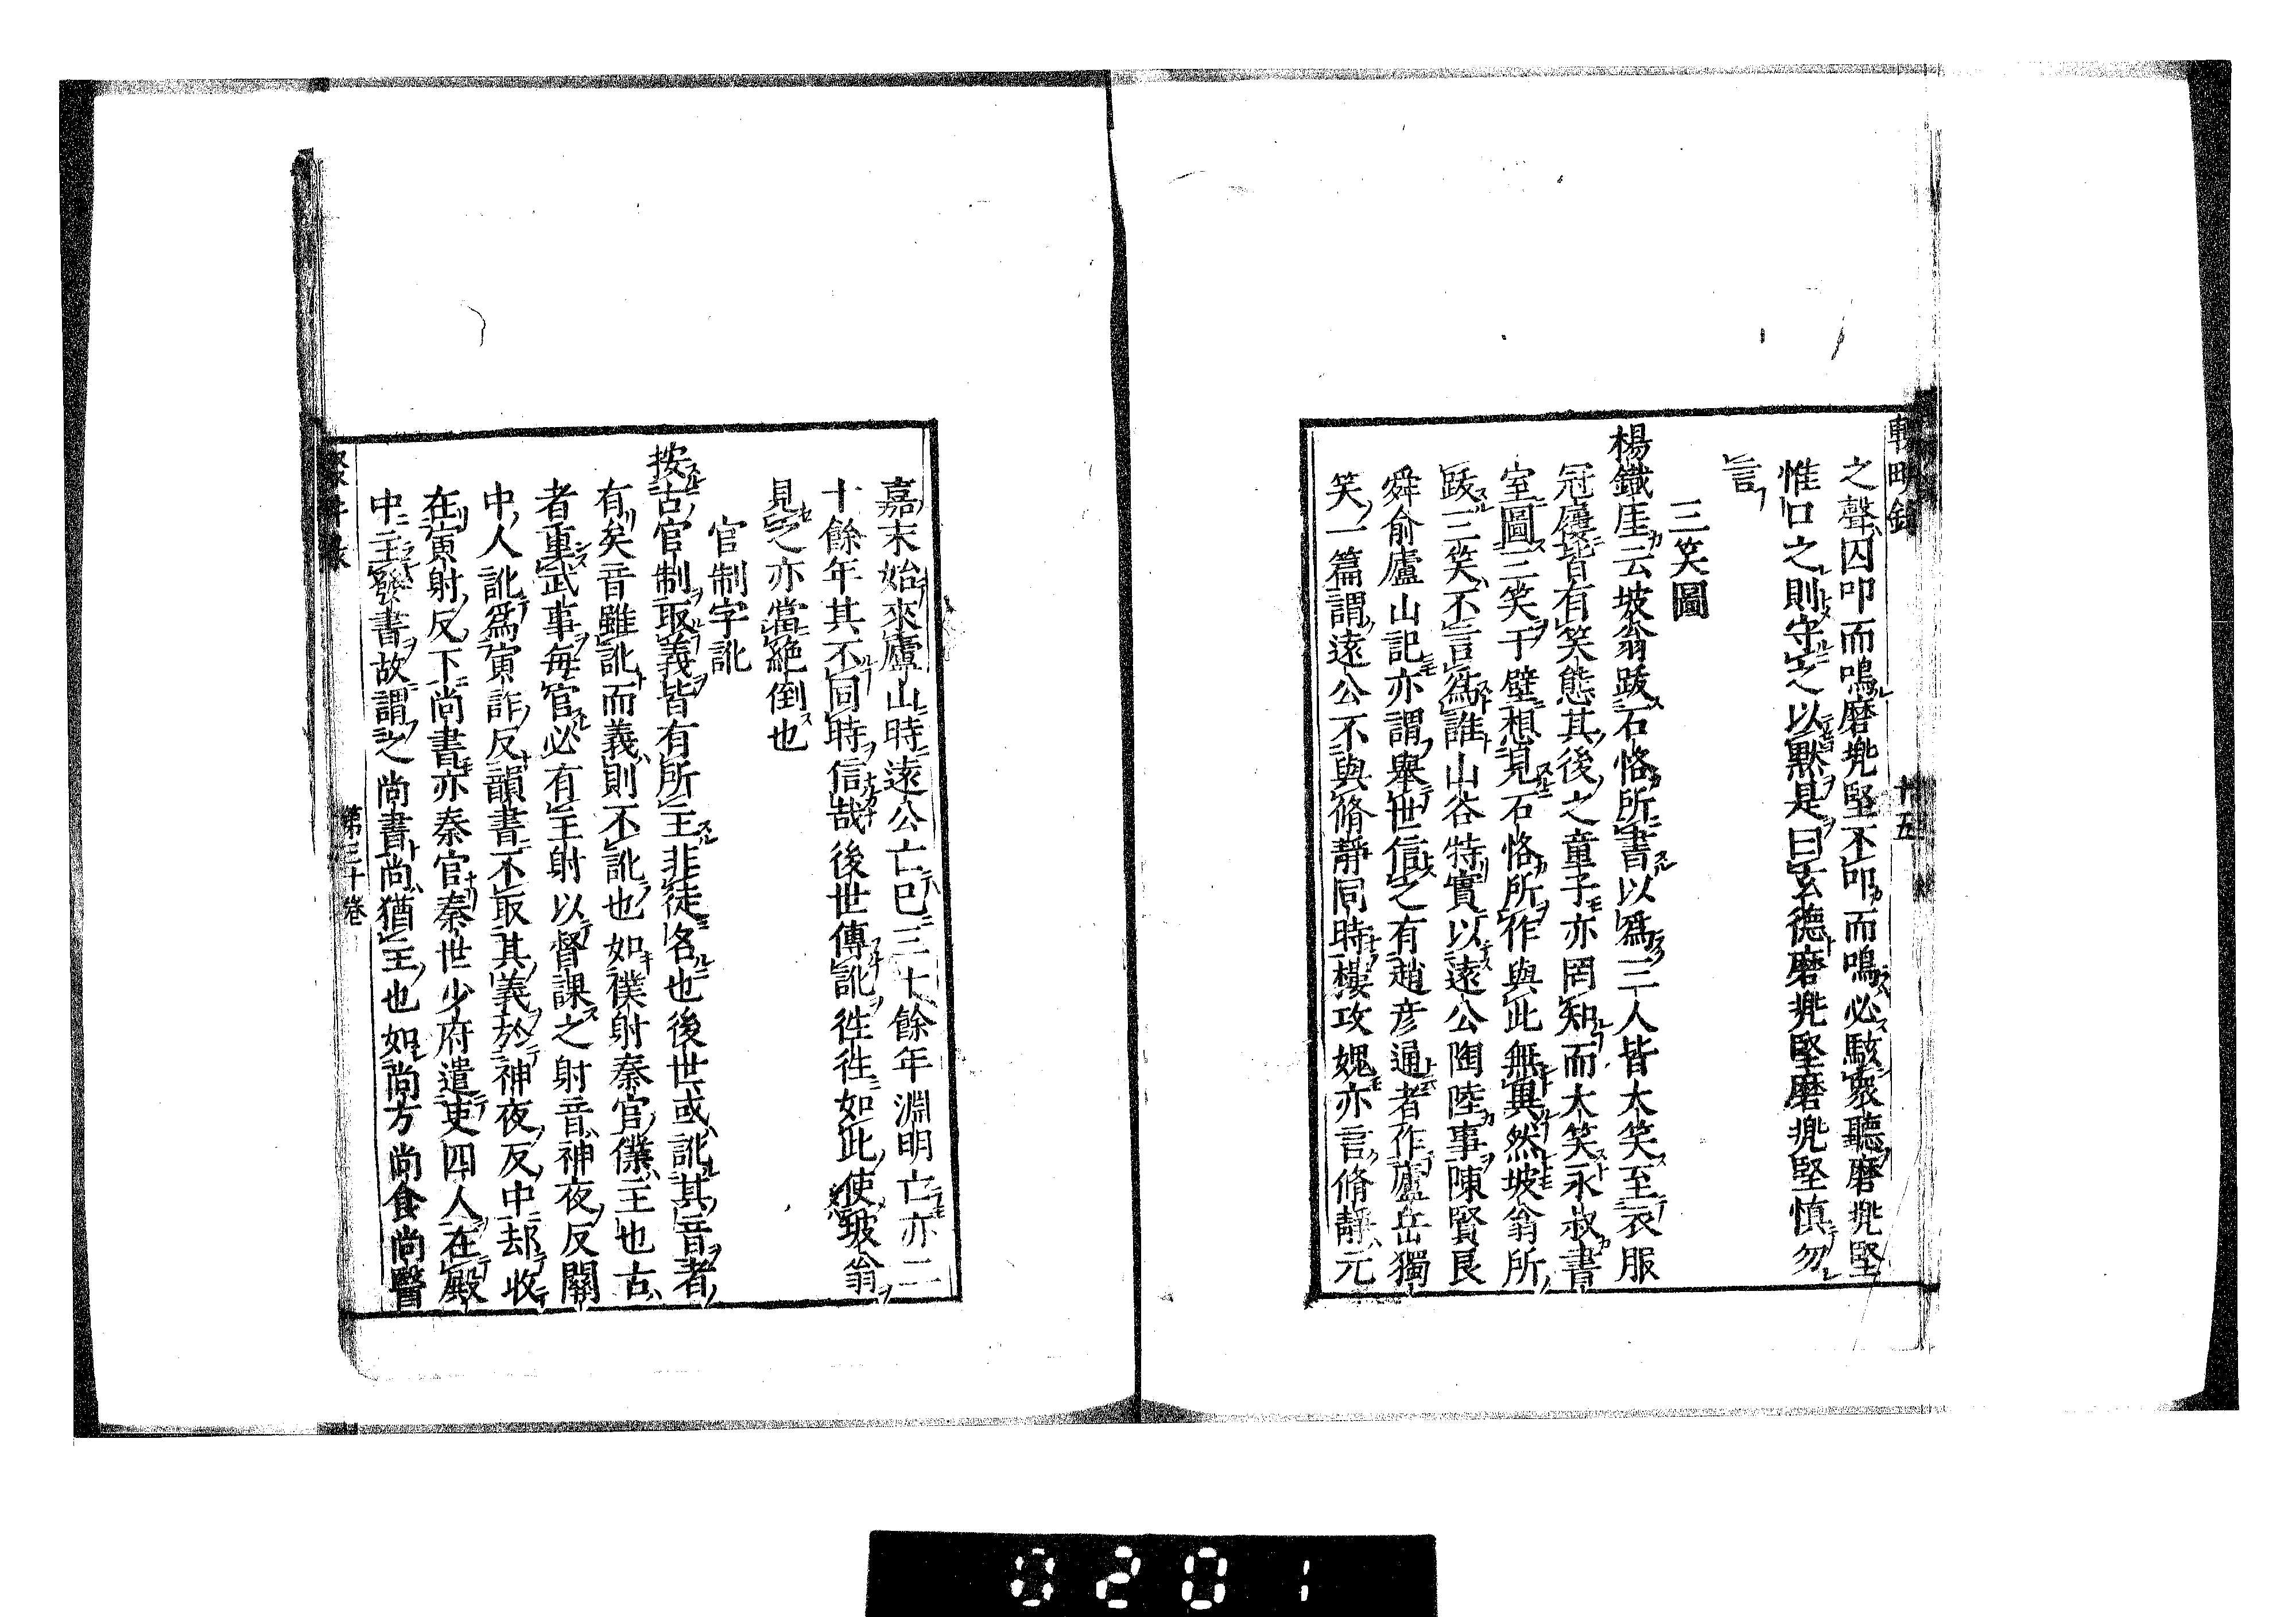 之聲囚叩而鳴磨兠堅不叩而鳴必駭衆聽磨兠堅
惟口之則守之以黙是曰玄德磨兠堅磨兠堅慎勿
言
三笑圖
楊鐡厓云坡翁跋石恪所畫以爲三人皆大笑至衣服
冠履皆有笑態其後之童子亦罔知而大笑永叔書
室圖三笑于壁想見石恪所作與此無異然坡翁所
跋三笑不言爲誰山谷特實以遠公陶陸事陳賢良
舜俞廬山記亦謂舉世信之有趙彦通者作廬岳獨
笑一篇謂遠公不與脩靜同時樓攻媿亦言脩靜元
嘉末始來廬山時遠公亡已三十餘年淵明亡亦二
十餘年其不同時信哉後世傳訛徃徃如此使坡翁
見之亦當絶倒也
官制字訛
按古官制取義皆有所主非徒名也後世或訛其音者
有矣音雖訛而義則不訛也如僕射秦官僕主也古
者重武事每官必有主射以督課之射音神夜反關
中人訛爲寅詐反韻書不取其義於神夜反中却收
在寅射反下尚書亦秦官秦世少府遣吏四人在殿
中主發書故謂之尚書尚猶主也如尚方尚食尚醫
十五
第三十卷